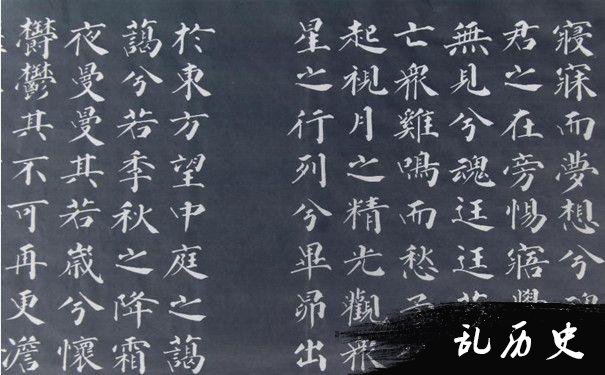 寢寐而夢想兮
君之在旁惕寤覺
無見兮魂迋迋若
亡衆雞鳴而愁予
起視月之精光觀衆
星之行列兮畢昴出
於東方望中庭之藹
藹兮若季秋之降霜
夜曼曼其若歲兮懷
鬱鬱其不可再更澹
乱历史